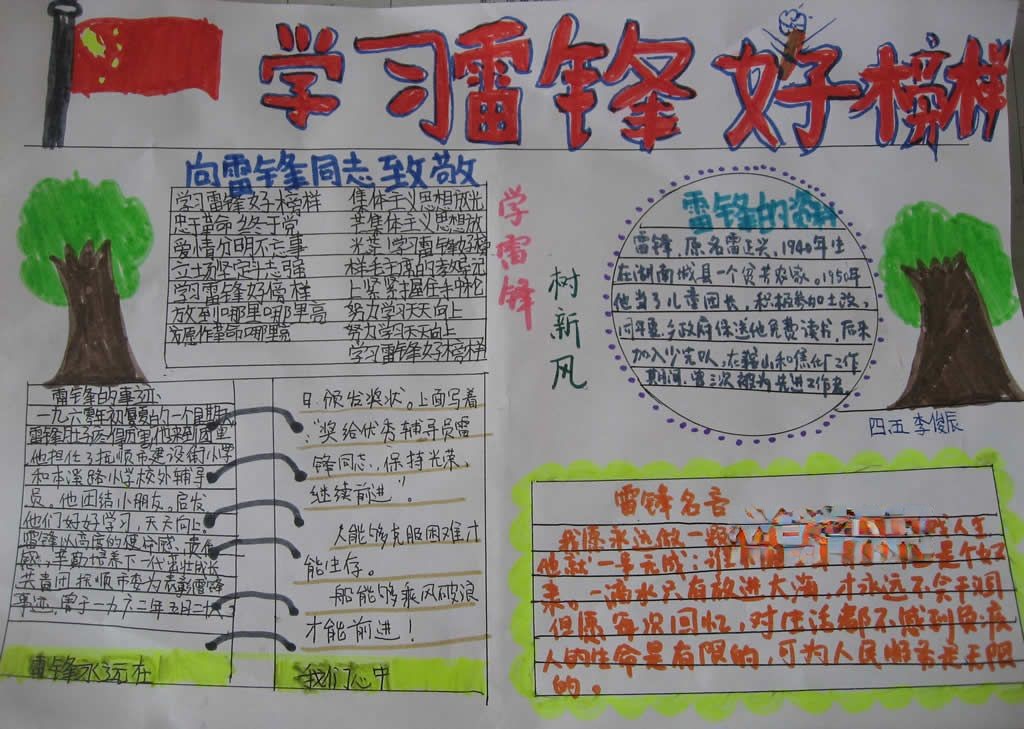 学习雷锋 好榜样
向雷锋同志致敬
学习雷锋好榜样
忠于革命终于党
爱憎分明不忘事
立场坚定斗志强
学习雷锋好榜样
放到哪里哪里亮
愿作革命哪里亮
集体主义思想放光
共集体主义思想放
光芒!学习雷锋好榜
样毛主席的教导记
上紧紧握住手中枪
努力学习天天向上
努力学习天天向上
学习雷锋好榜样
学雷锋
树新风
雷锋的资料
雷锋,原名雷正兴,1940年生
在湖南城县一个贫苦农家。1950年
他当了儿童团长,积极参加土改,
同年夏乡政府保送他免费读书,后来
加入少先队,在鞍山和焦化厂工作
期间,曾三次被为先进工作者
四.五 李俊辰
雷锋的事迹
一九六零年初夏的一个星期天
雷锋肚子疼得厉害他来到团里
他担任了抚顺市建设街小学
和本溪路小学校外辅导
员。他团结小朋友,启发
他们好好学习,天天向上
雷锋以高度的使命感,责任
感,辛勤培养下一代茁壮成长
共青团抚顺市委为表彰雷锋
事迹,曾于一九六二年五月二十八
雷锋永远在
日颁发奖状。上面写着
:“奖给优秀辅导员雷
锋同志,保持光荣,
继续前进”。
人能够克服困难才
能生存。
船能够乘风破浪
才能前进!
我们心中
雷锋名言
我愿永远做一颗
他就一事无成;谁
来。一滴水只有放进大海,才永远不会干涸
但愿每次回忆,对生活都不感到负疚
人的生命是有限的,可为人民服务是无限
的。